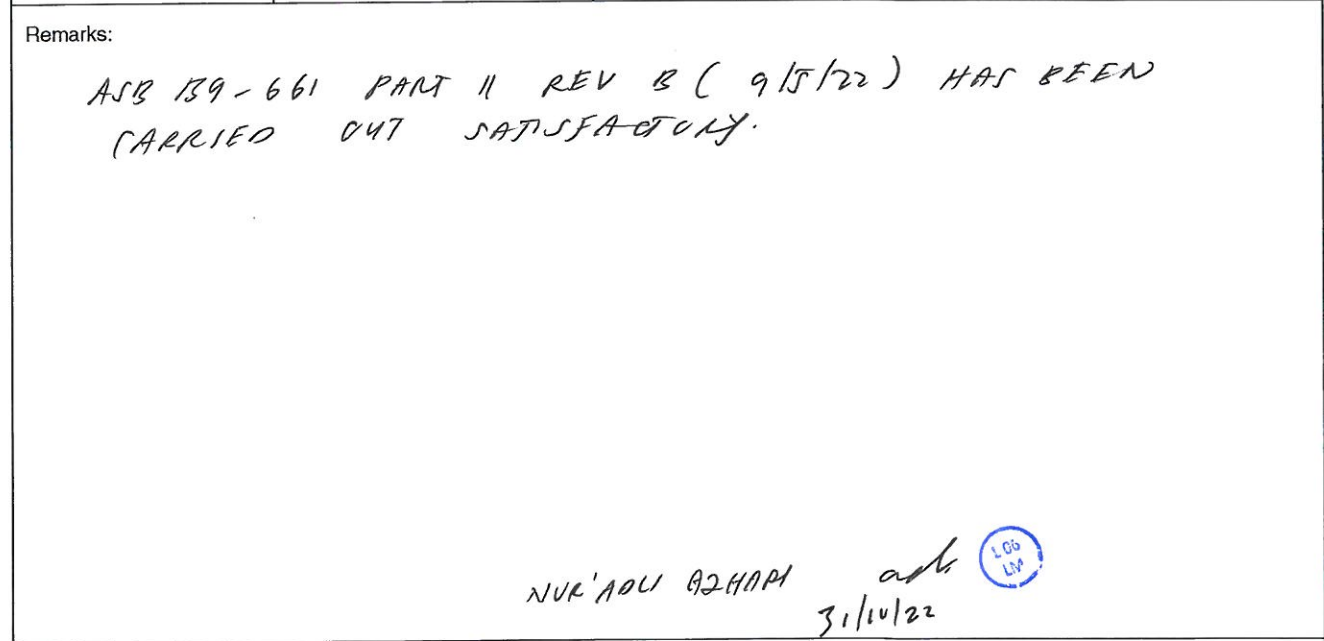 Remarks:
ASB 139-661 PART II REV B ( 9/5/22 ) HAS BEEN
CARRIED OUT SATISFACTORY.
NUR'ADLI AZHARI
L06
LM
31/10/22